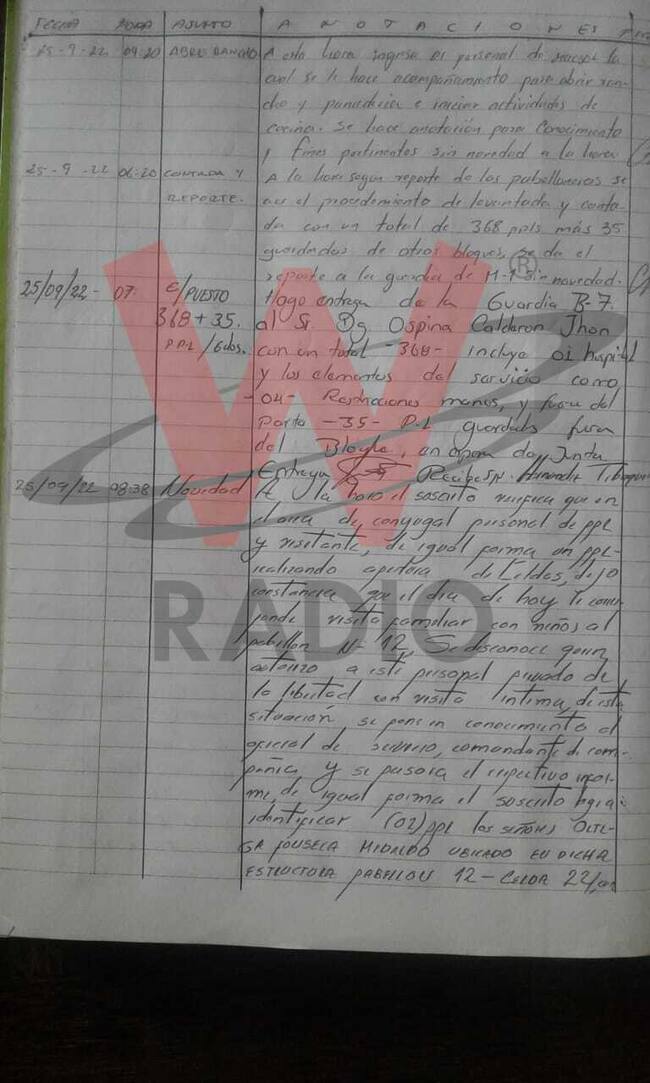 FECHA HORA ASUNTO ANOTACIONES
25-9-22 04:20 ABRE RANCHO A esta hora ingresa el personal de rancho la
cual se le hace acompañamiento para abrir ran-
cho y panadería e iniciar actividades de
cocina. Se hace anotación para conocimiento
y fines pertinentes sin novedad a la hora
25-9-22 06:20 CONTADA Y A la hora según reporte de los pabelloneros se
REPORTE. el procedimiento de levantada y conta-
da con un total de 368 ppls más 35
guardados de otros bloques, se da el
reporte a la guardia de sin novedad.
25/09/22- 07. E/PUESTO Hago entrega de la Guardia B-7.
368+35. al Sr. Dg Ospina Calderon Jhon
PPL/Gubs. con un total -368- incluye 01 hospital
y los elementos del servicio como
-04- Restricciones manos, y fuera del
Parte -35- P.L guardados fuera
del Bloque, en espera de Junta
Entrega Recibe SN.
25/09/22 08:38 Novedad A la hora el suscrito verifica que en
el area de conyugal personal de ppl
y visitante, de igual forma un ppl-
realizando apertura de celdas, dejo
constancia que el dia de hoy le corres-
ponde visita familiar con niños al
pabellon N- 12, Se disconoce quien
autorizo a este personal privado de
la libertad con visita intima, de esta
situación se pone en conocimiento al
oficial de servicio, comandante de com-
pañia y se pasara el respectivo infor-
me, de igual forma el suscrito logra
identificar (02) ppl los señores ORTE-
GA FONSECA HIDALDO UBICADO EN DICHA
ESTRUCTURA PABELLON 12 - CELDA 22,
W
®
RADIO